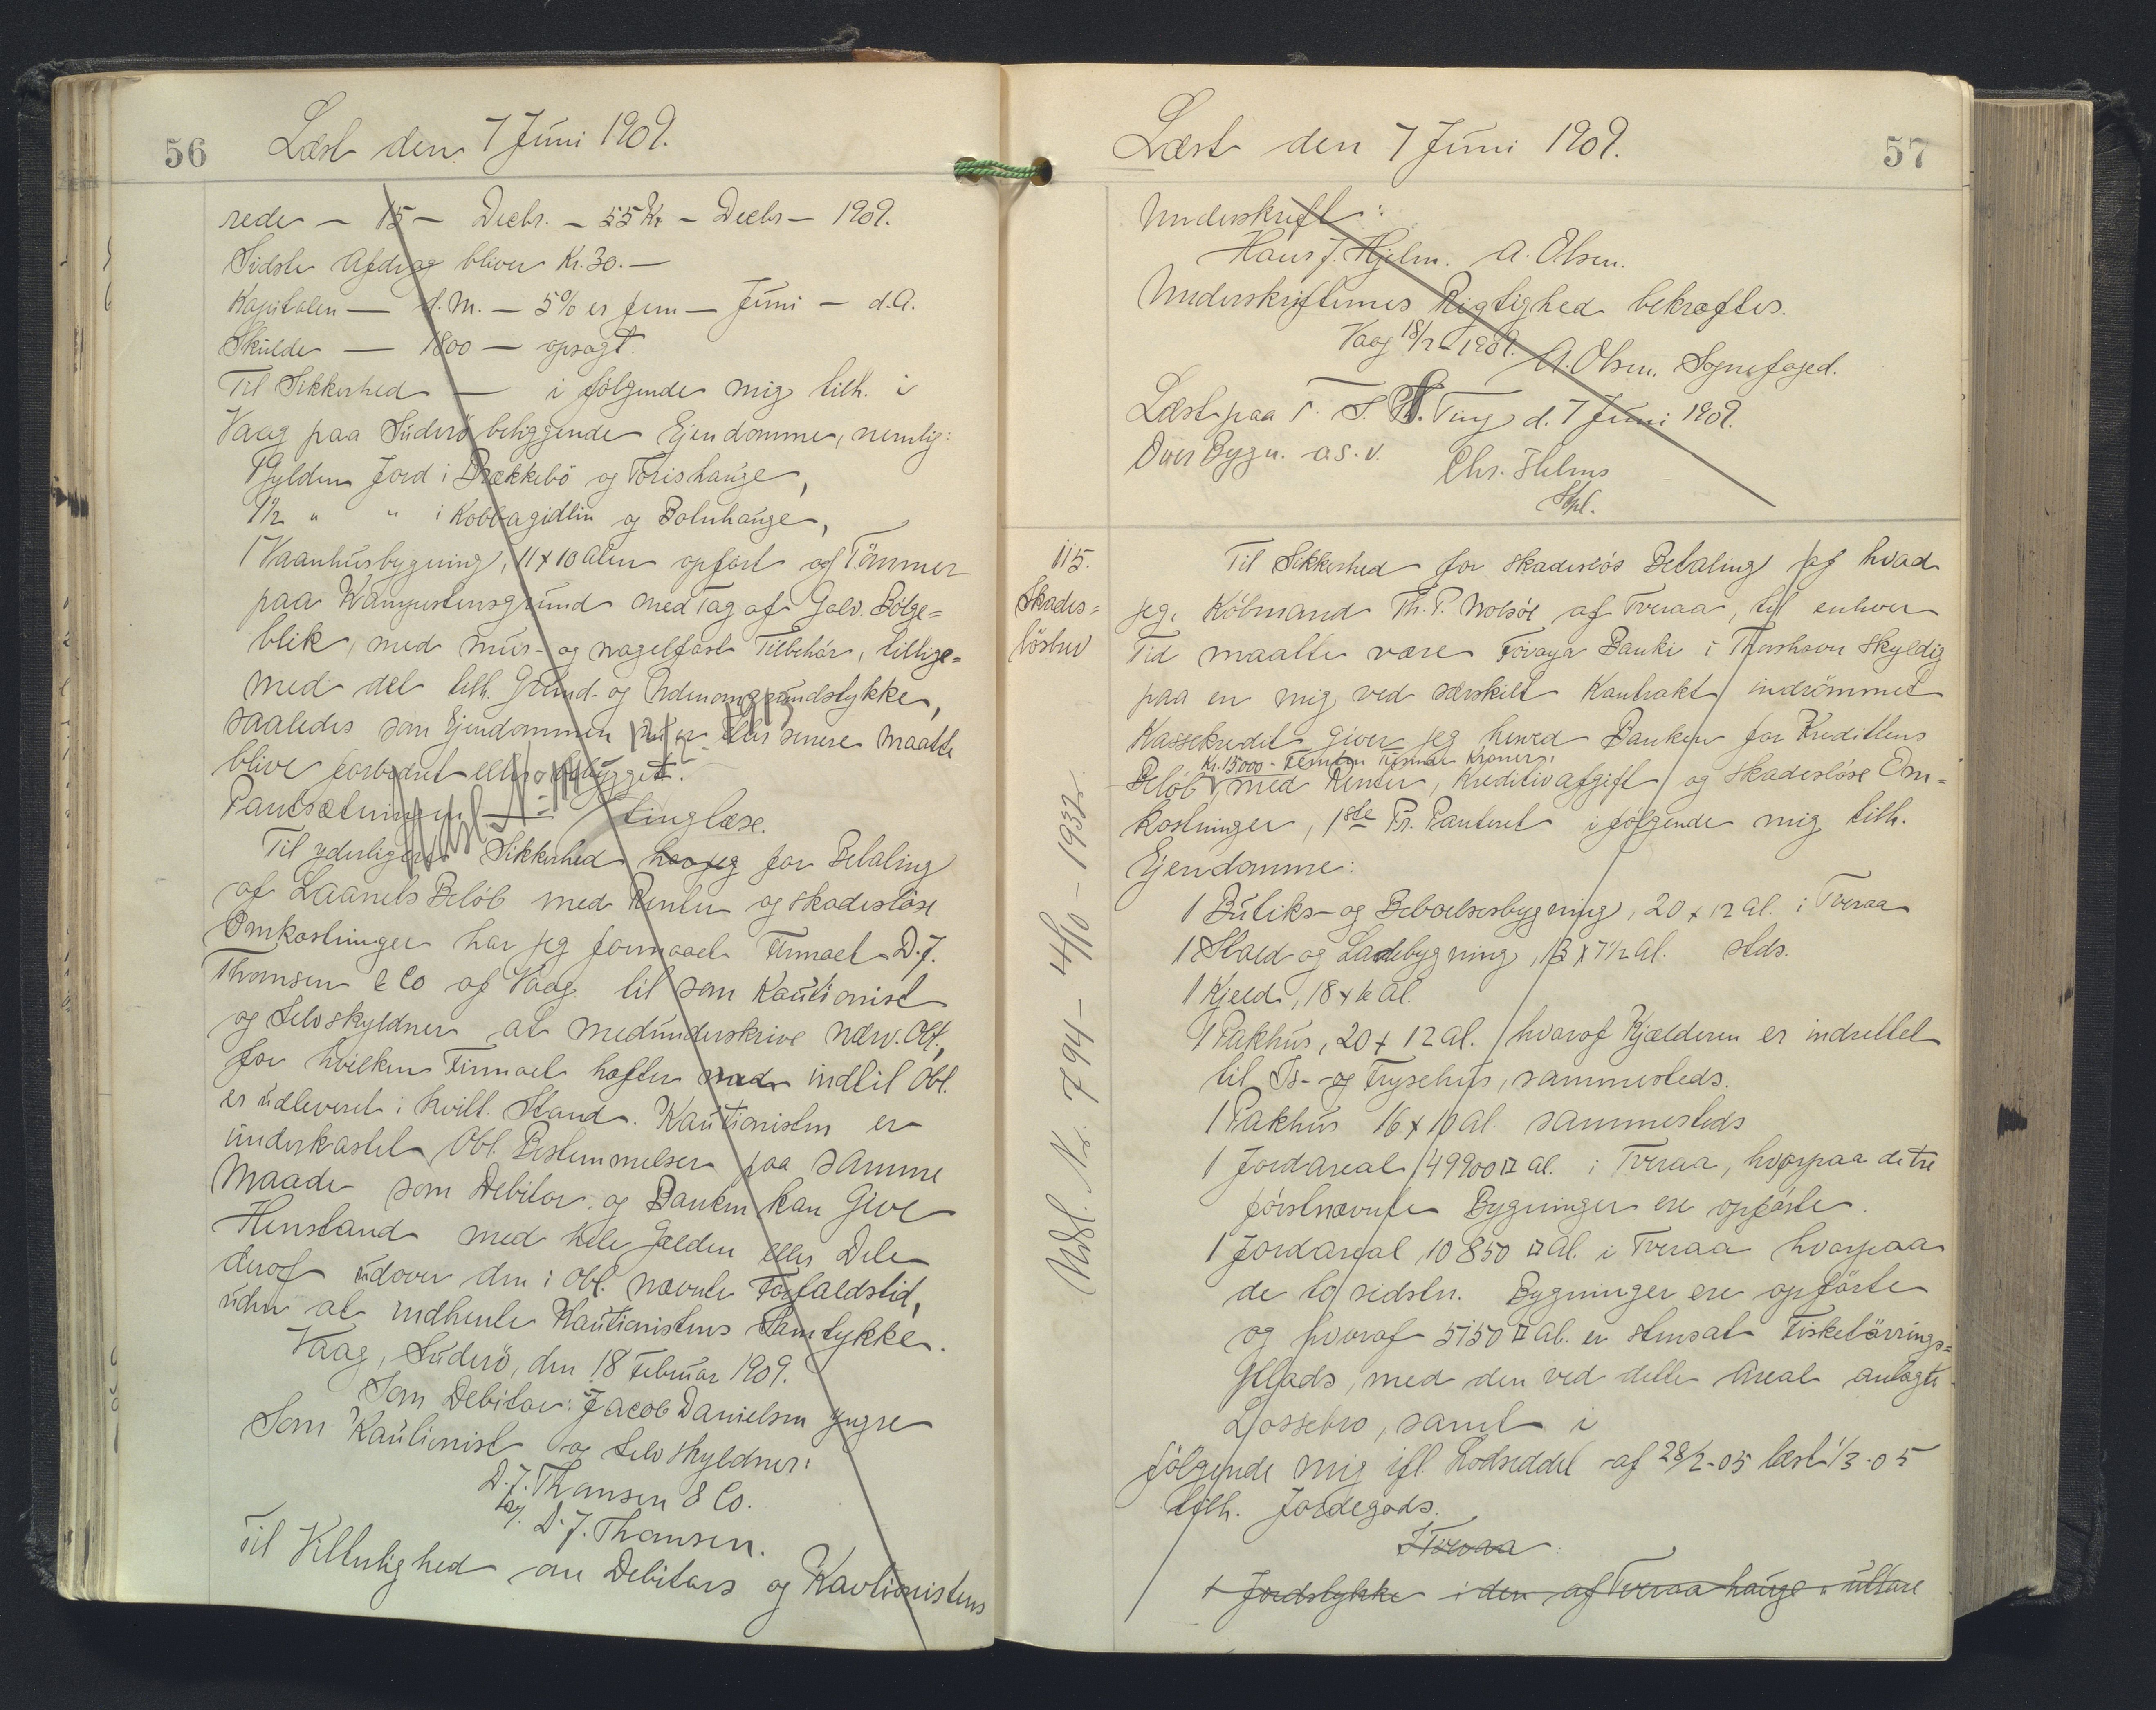 56
Læst den 7 Juni 1909.
rede - 15 - Decbr. - 55 Kr - Decbr - 1909.
Sidste Afdrag bliver Kr. 30. -
Kapitalen - d. M. - 5% er fem - Juni - d.A.
Skulde - 1800 - opsagt.
Til Sikkerhed - i følgende mig tilh. i
Vaag paa Suderö beliggende Ejendomme, nemlig:
1 Gylden Jord i Brekkebö og Torishauge,
1½ " " i Kobbagidlin og Bolnhauge,
1 Vaanhusbygning, 11 x 10 Alen opført af Tömmer
paa Kampestensgrund med Tag af Galv. Bölge=
blik, med mur- og nagelfast Tilbehör, tillige=
med det tilh. Grund- og Udenomsgrundstykke,
saaledes som Ejendommen nu er eller senere maatte
blive forbedret eller bebygget.
Pantsætningen - tinglæse.
Til yderligere Sikkerhed har jeg for Betaling
af Laanets Beløb med Renter og skadesløse
Omkostninger har jeg formaaet Firmaet D. J.
Thomsen & Co af Vaag til som Kautionist
og Selvskyldner at medunderskrive nærv. Obl.,
for hvilken Firmaet hæfter indtil Obl.
er udleveret i kvitt. Stand. Kautionisten er
underkastet Obl. Bestemmelser paa samme
Maade som Debitor, og Banken kan give
Henstand med hele Gælden eller Dele
deraf udover den i Obl. nævnte Forfaldstid,
uden at indhente Kautionistens Samtykke.
Vaag, Suderö, den 18 Februar 1909.
Som Debitor: Jacob Danielsen yngre
Som Kautionist og Selvskyldner:
D. J. Thomsen & Co.
D. J. Thomsen.
Til Vitterlighed om Debitors og Kavtionistens
57
Læst den 7 Juni 1909.
Underskrift:
Hans J. Hjelm. A. Olsen.
Underskrifternes Rigtighed bekræftes.
Vaag 18/2 - 1909. A. Olsen. Sognefoged.
Læst paa T. S. Ting d. 7 Juni 1909.
Over Bygn. a.s.v.
Chr. Helms
Spl.
115.
Skades=
lösbrev
Til Sikkerhed for skadeslös Betaling af hvad
jeg, Købmand Th. P. Nolsöe af Tveraa, til enhver
Tid maatte være Føroya Banki i Thorshavn skyldig
paa en mig ved særskilt Kontrakt indrömmet
Kassekredit giver jeg herved Banken for Kreditens
Kr. 15000 - Femten Tusinde Kroner,
Beløb med Renter, Kreditivafgift og skadesløse Om=
kostninger, 1ste Pr. Panteret i følgende mig tilh.
Ejendomme:
1 Butiks- og Beboelsesbygning, 20 x 12 Al. i Tveraa
1 Stald og Ladebygning, 13 x 7½ Al. steds.
1 Kjeld, 18 x 6 Al.
1 Pakhus, 20 x 12 Al. hvoraf Kjælderen er indrettet
til Is- og Frysehus, sammesteds.
1 Pakhus 16 x 10 Al. sammesteds
1 Jordareal 49900 □ Al. i Tveraa, hvorpaa de tre
førstnævnte Bygninger ere opførte.
1 Jordareal 10850 □ Al. i Tveraa hvorpaa
de to sidstn. Bygninger ere opførte
og hvoraf 5150 □ Al. er stensat Fisketörrings=
plads, med den ved dette Areal anlagte
Lossebro, samt i
følgende mig ifl. Lodseddel af 28/2-05 læst 1/3-05
tilh. Jordegods.
I Tveraa:
1 Jordstykke i den af Tveraa hauge
Udsl. Nr. 794 - 4/10 - 1932.